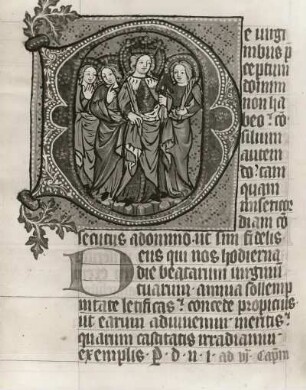 e uirgi
nibus p̄
ceptum
domini
non ha
beo: cō
silium
autem
do: tam
quam
misericor
diam cō
secutus a domino: ut sim fidelis
Deus qui nos hodierna
die beatarum uirginū
tuarum annua sollemp
nitate letificas: concede propicius
ut earum adiuuemur meritis:
quarum castitatis irradiamur
exemplis P. d. n. i. ad vj. Cap̄m